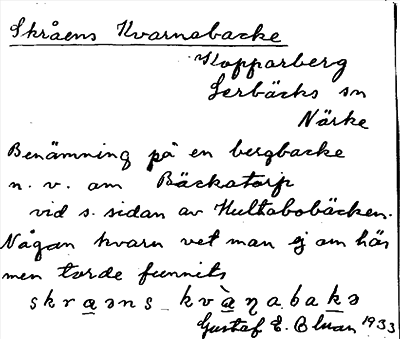 Skråens Kvarnabacke
Kopparberg
Lerbäcks sn
Närke
Benämning på en bergbacke
n. v. om Bäckatorp
vid s. sidan av Hultabobäcken.
Någon kvarn vet man ej om här
men torde funnits
skraəns kvàɳabakə
Gustaf E. 1933